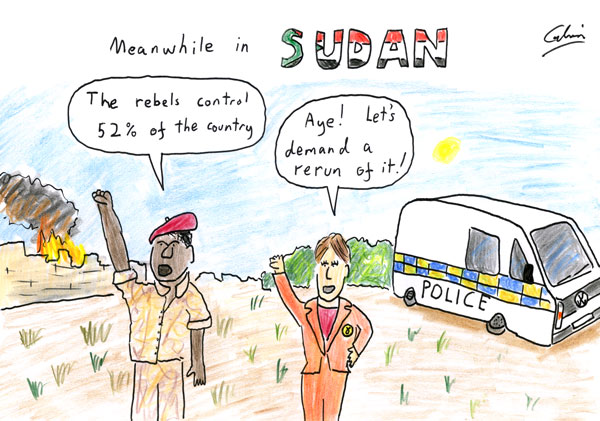 Meanwhile in SUDAN
The rebels control
52% of the country
Aye! Let's
demand a
rerun of it!
POLICE